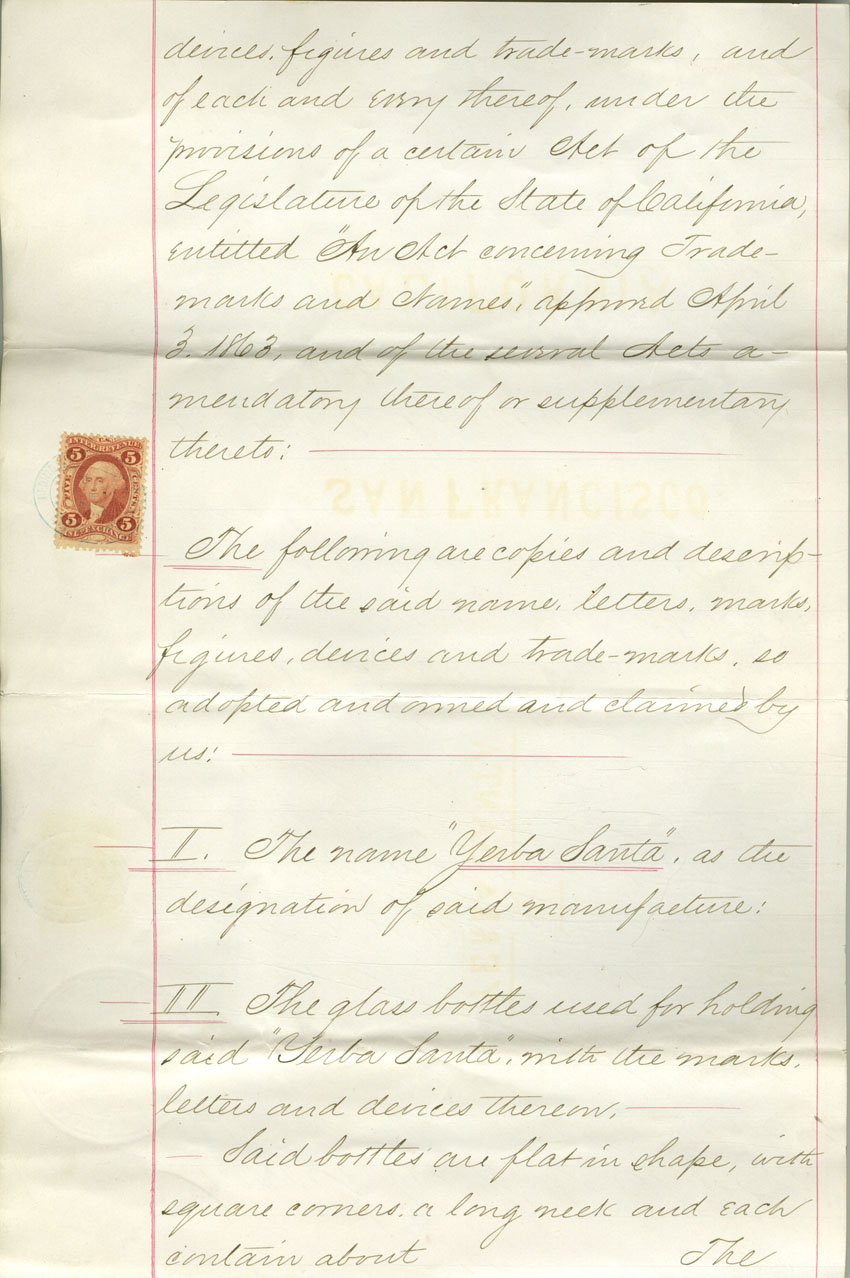 devices, figures and trade-marks, and
of each and every thereof, under the
provisions of a certain Act of the
Legislature of the State of California,
entitled "An Act concerning Trade-
marks and Names", approved April
3. 1863, and of the several Acts a-
mendatory thereof or supplementary
thereto:
U.S.
INTER. REVENUE
5 5
FIVE CENTS
5 5
INL. EXCHANGE
SAN FRANCISCO
The following are copies and descrip-
tions of the said name, letters, marks,
figures, devices and trade-marks, so
adopted and owned and claimed by
us:
II. The name "Yerba Santa", as the
designation of said manufacture:
III. The glass bottles used for holding
said "Yerba Santa", with the marks,
letters and devices thereon.
Said bottles are flat in shape, with
square corners, a long neck and each
contain about The